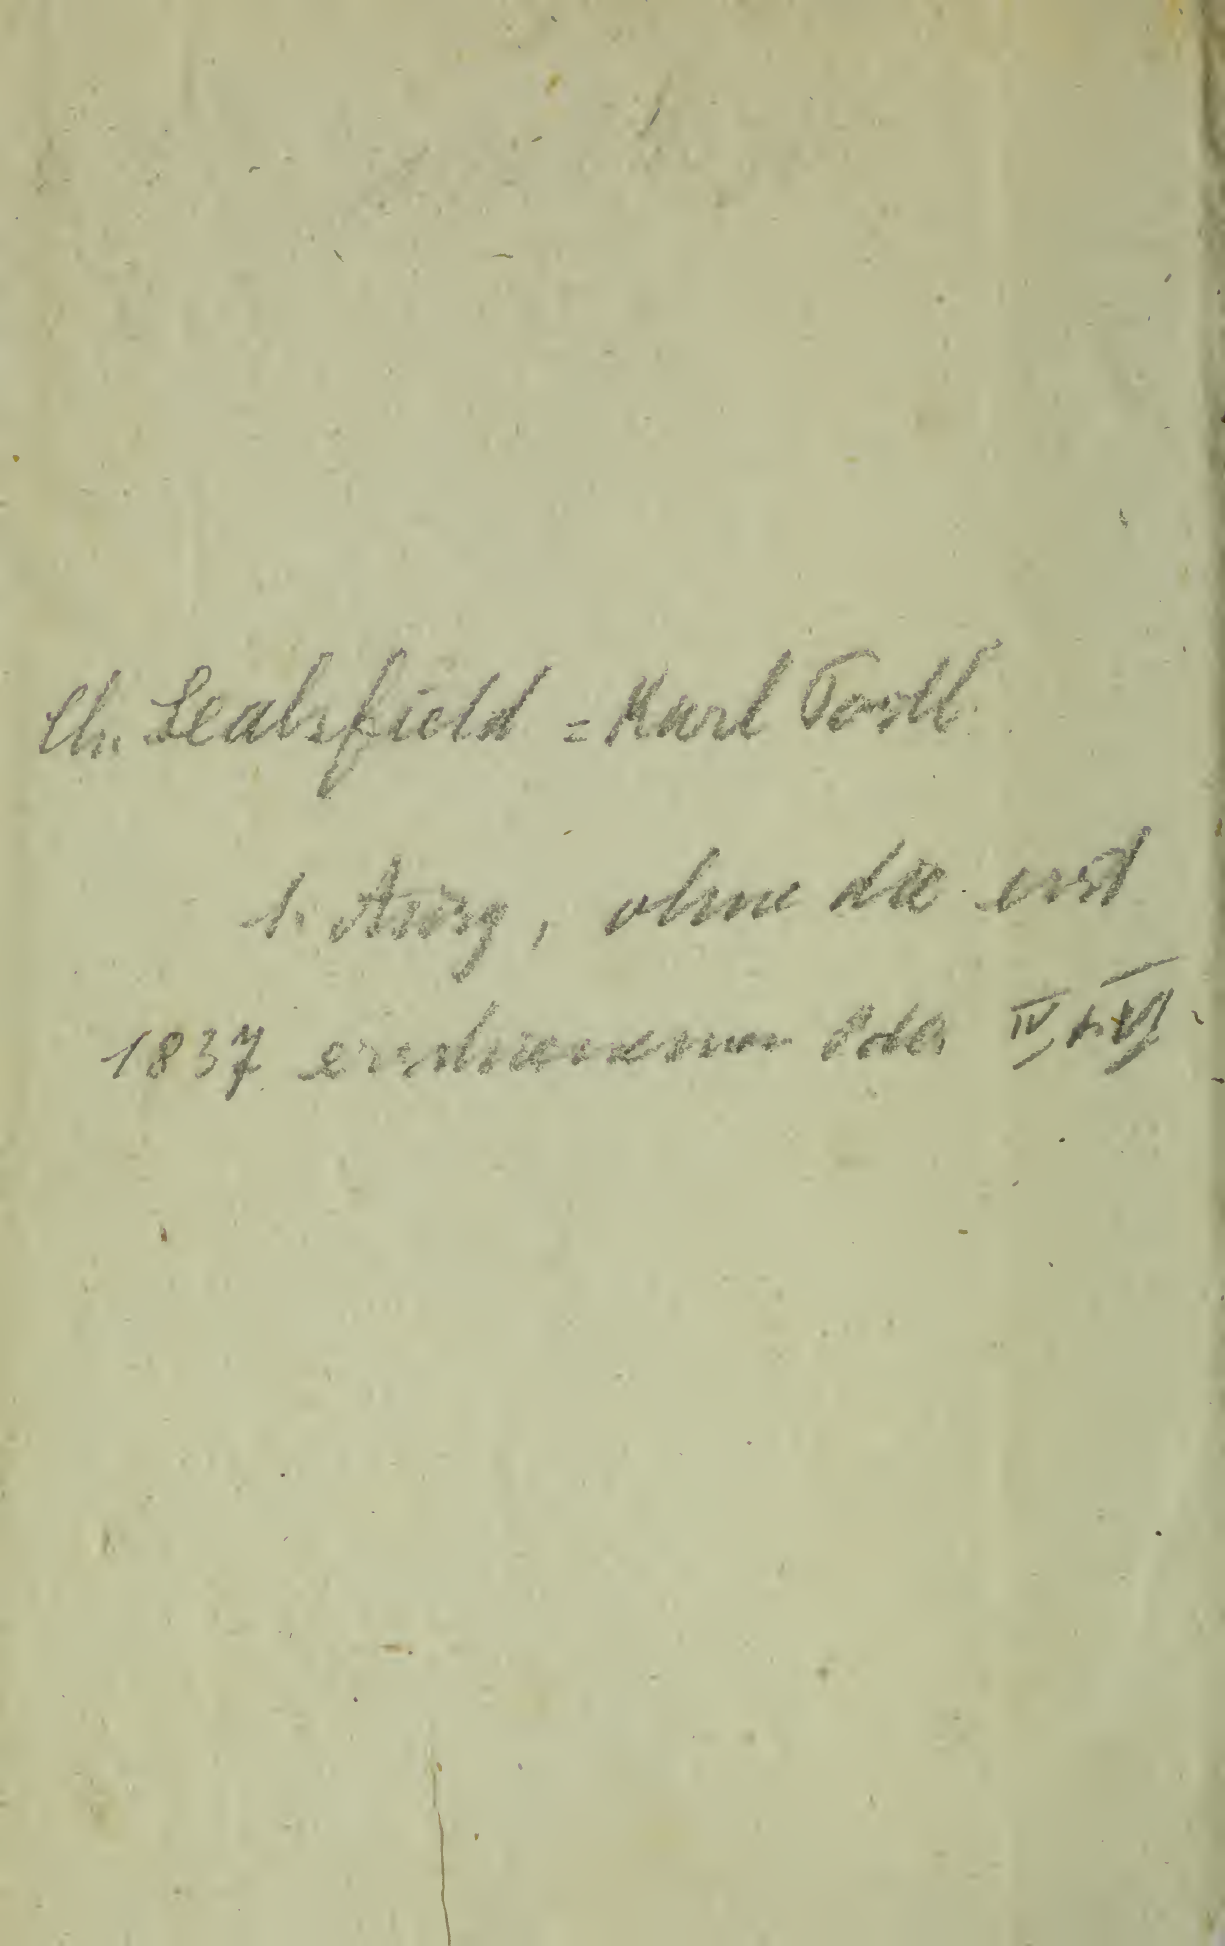 Ch. Sealsfield = Karl Postl
1. Ausg, ohne die erst
1837 erschienenen Bde IV